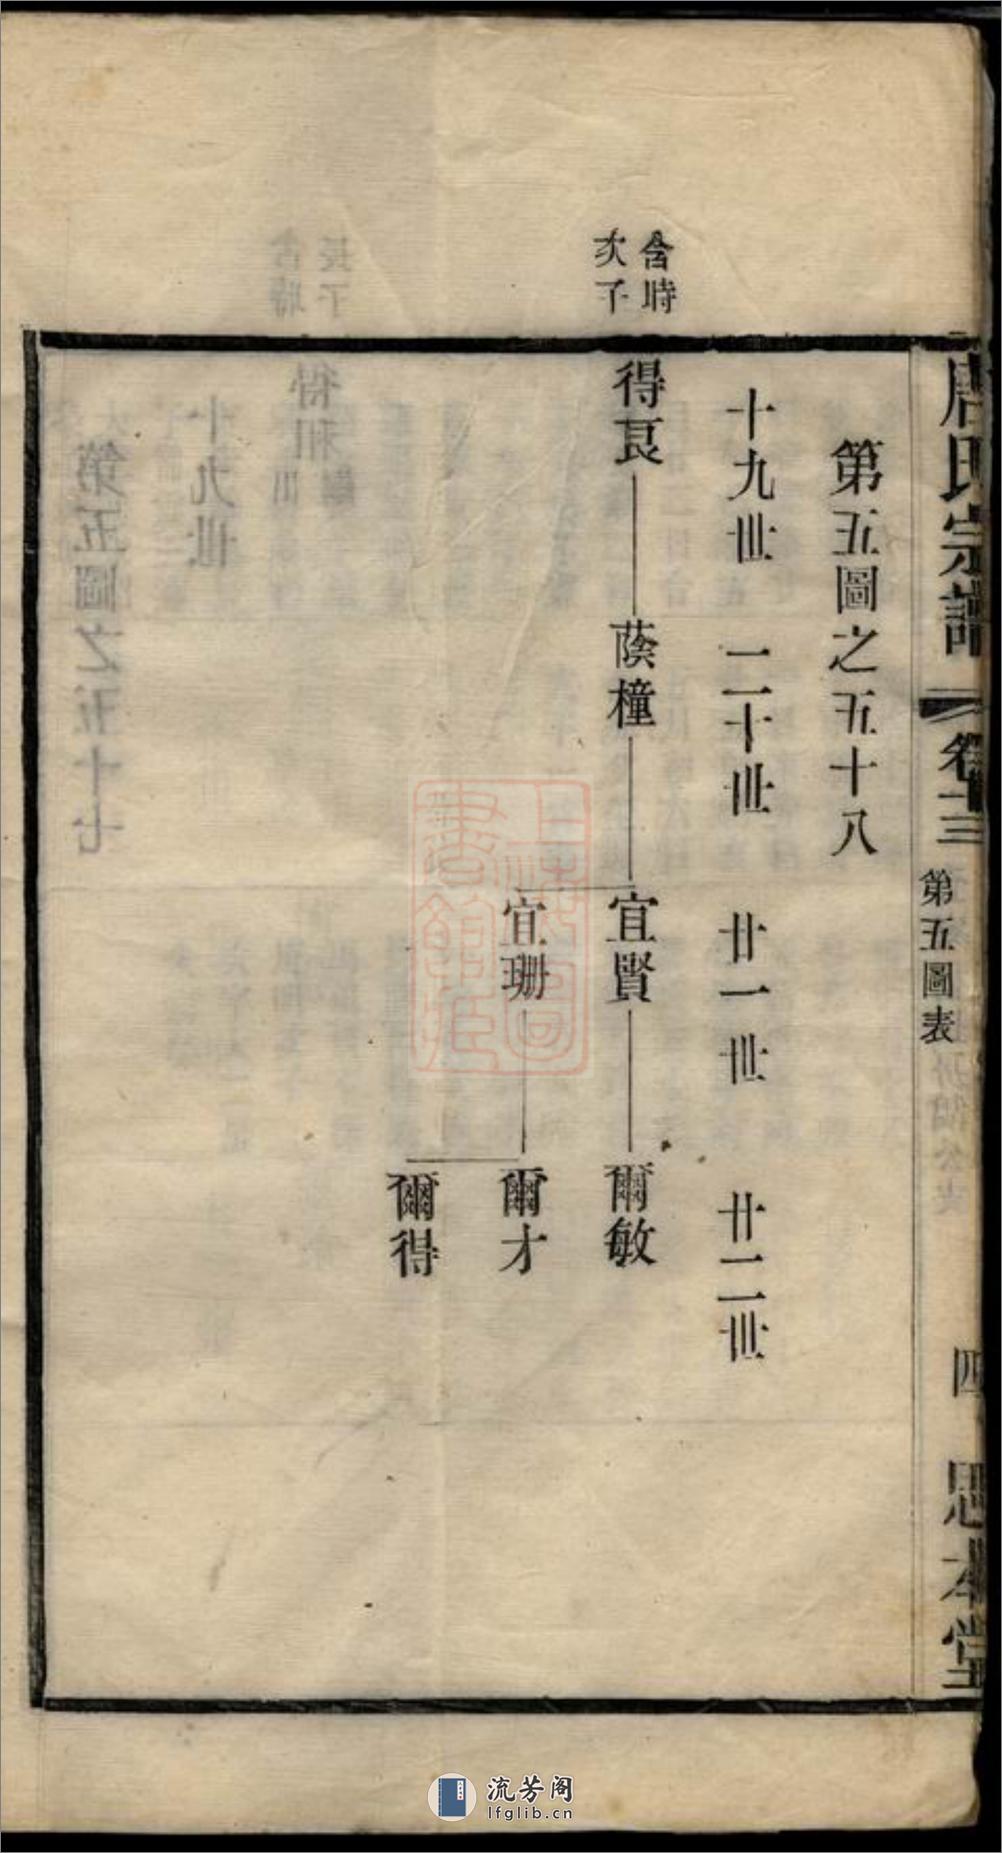 唐氏宗譜
卷十三
第五圖表
四
思本堂
第五圖之五十八
十九世
二十世
廿一世
廿二世
含時
次子
得良
蔭橦
宜賢
爾敏
宜珊
爾才
爾得
流芳阁
lfglib.cn